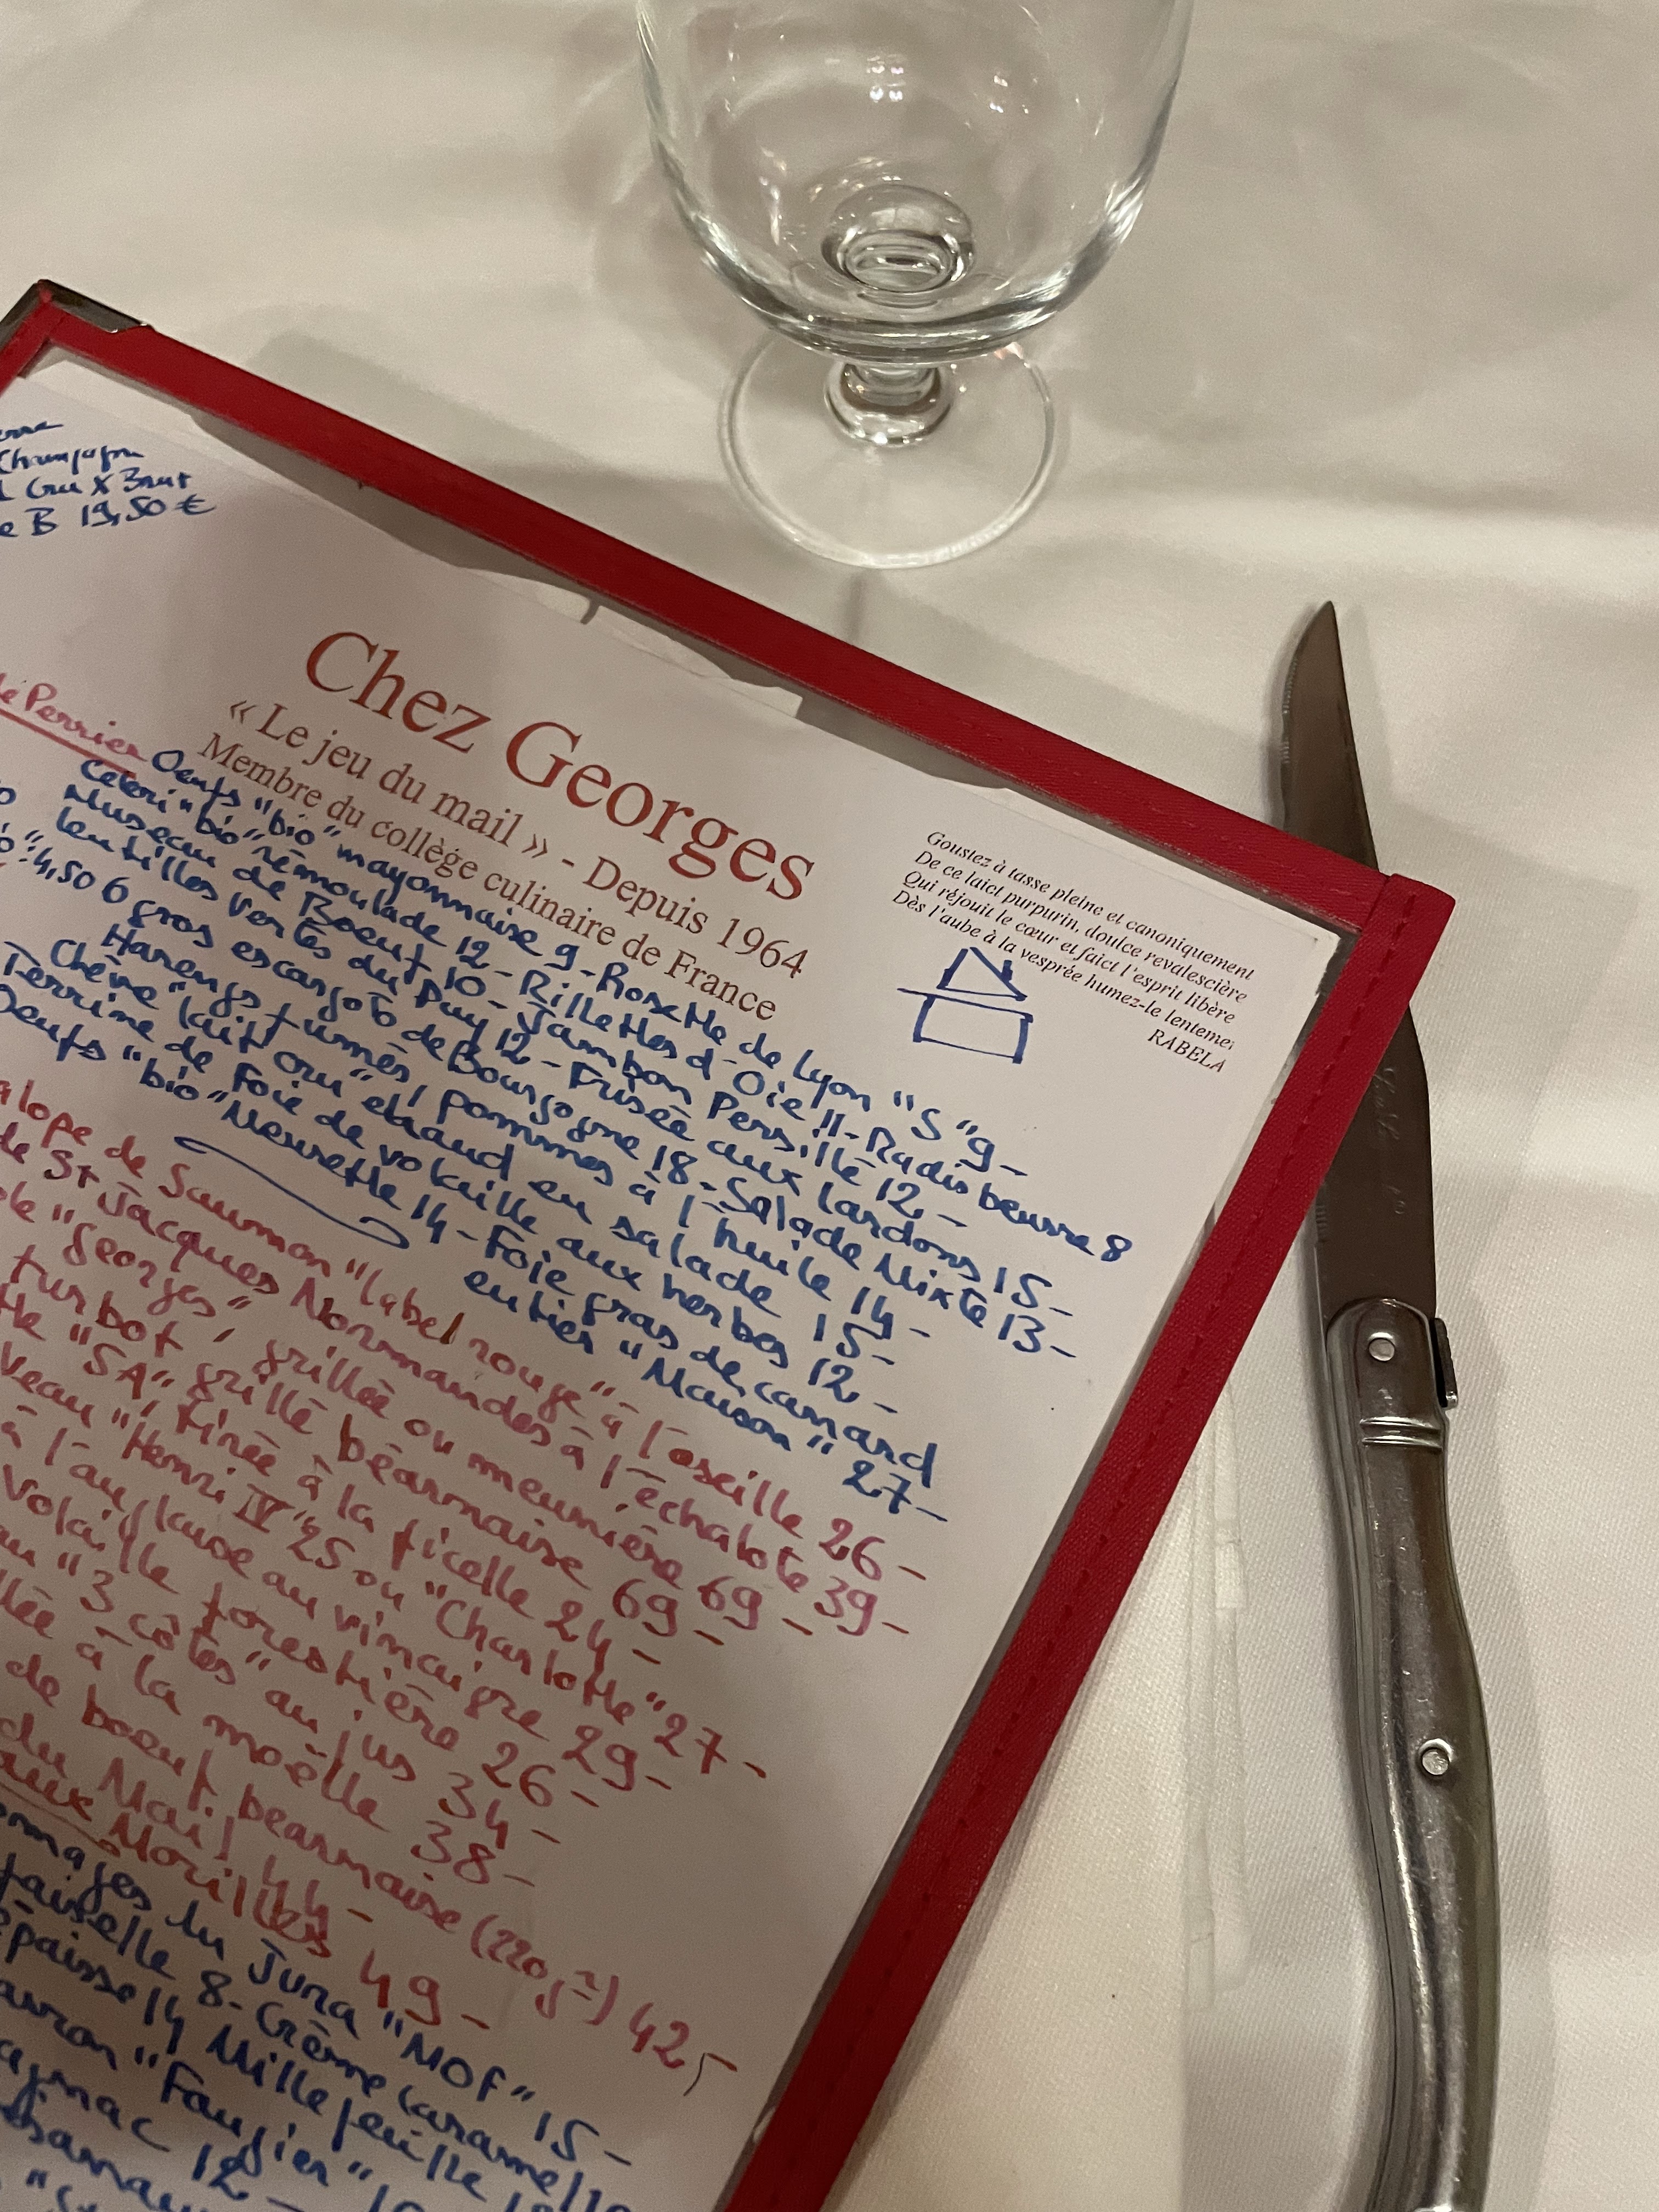 Champagne
Cru X Brut
B 19,50 €
Chez Georges
« Le jeu du mail » - Depuis 1964
Membre du collège culinaire de France
Goustez à tasse pleine et canoniquement
De ce laict purpurin, doulce revalescière
Qui réjouit le cœur et faict l'esprit libère
Dès l'aube à la vesprée humez-le lenteme
RABELA
Perrier
Oeufs "bio" mayonnaise 9 - Rosette de Lyon "S" 9 -
Céleri "bio" rémoulade 12 - Rillettes d'Oie 11 - Radis beurre 8
Museau de Boeuf 10 - Jambon Persillé 12 -
lentilles vertes du Puy 12 - Frisée aux lardons 15 -
4,50 6 gros escargots de Bourgogne 18 - Salade Mixte 13 -
Harengs fumés, pommes à l'huile 14 -
Chèvre "lait cru" chaud en salade 15 -
Terrine de Foie de volaille aux herbes 12 -
Oeufs "bio" Meurette 14 - Foie gras de canard
entier "Maison" 27 -
alope de Saumon "label rouge" à l'oseille 26 -
de St Jacques Normandes à l'échalote 39 -
ole "Georges", grillée ou meunière 69 -
turbot grillé béarnaise 69 -
tte "SA", Tirée à la ficelle 24 -
veau "Henri IV" 25 ou "Charlotte" 27 -
à l'anglaise au vinaigre 29 -
volaille forestière 26 -
au "3 côtes" au jus 34 -
llée à la moëlle 38 -
de boeuf béarnaise (220 gr) 42,-
du Mail 44 -
aux Morilles 49 -
omages du Jura "MOF" 15 -
faisselle 8 - Crème caramel 10
épaisse 14 Mille feuille
"Faugier"
agnac 12 -